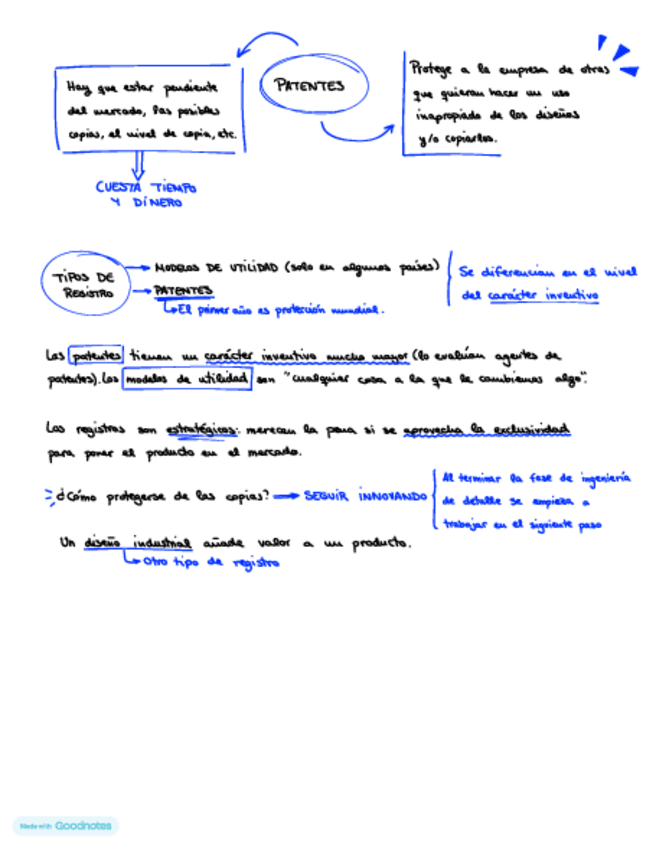 PATENTES
Hay que estar pendiente
del mercado, las posibles
copias, el nivel de copia, etc.
CUESTA TIEMPO
Y DINERO
Protege a la empresa de otras
que quieran hacer un uso
inapropiado de los diseños
y/o copiarlos.
TIPOS DE
REGISTRO
MODELOS DE UTILIDAD (solo en algunos países)
PATENTES
El primer año es protección mundial.
Se diferencian en el nivel
del carácter inventivo
Las patentes tienen un carácter inventivo mucho mayor (lo evalúan agentes de
patentes). Los modelos de utilidad son "cualquier cosa a la que le cambiemos algo".
Los registros son estratégicos: merecen la pena si se aprovecha la exclusividad
para poner el producto en el mercado.
¿Cómo protegerse de las copias? → SEGUIR INNOVANDO
Al terminar la fase de ingeniería
de detalle se empieza a
trabajar en el siguiente paso
Un diseño industrial añade valor a un producto.
Otro tipo de registro
Made with Goodnotes